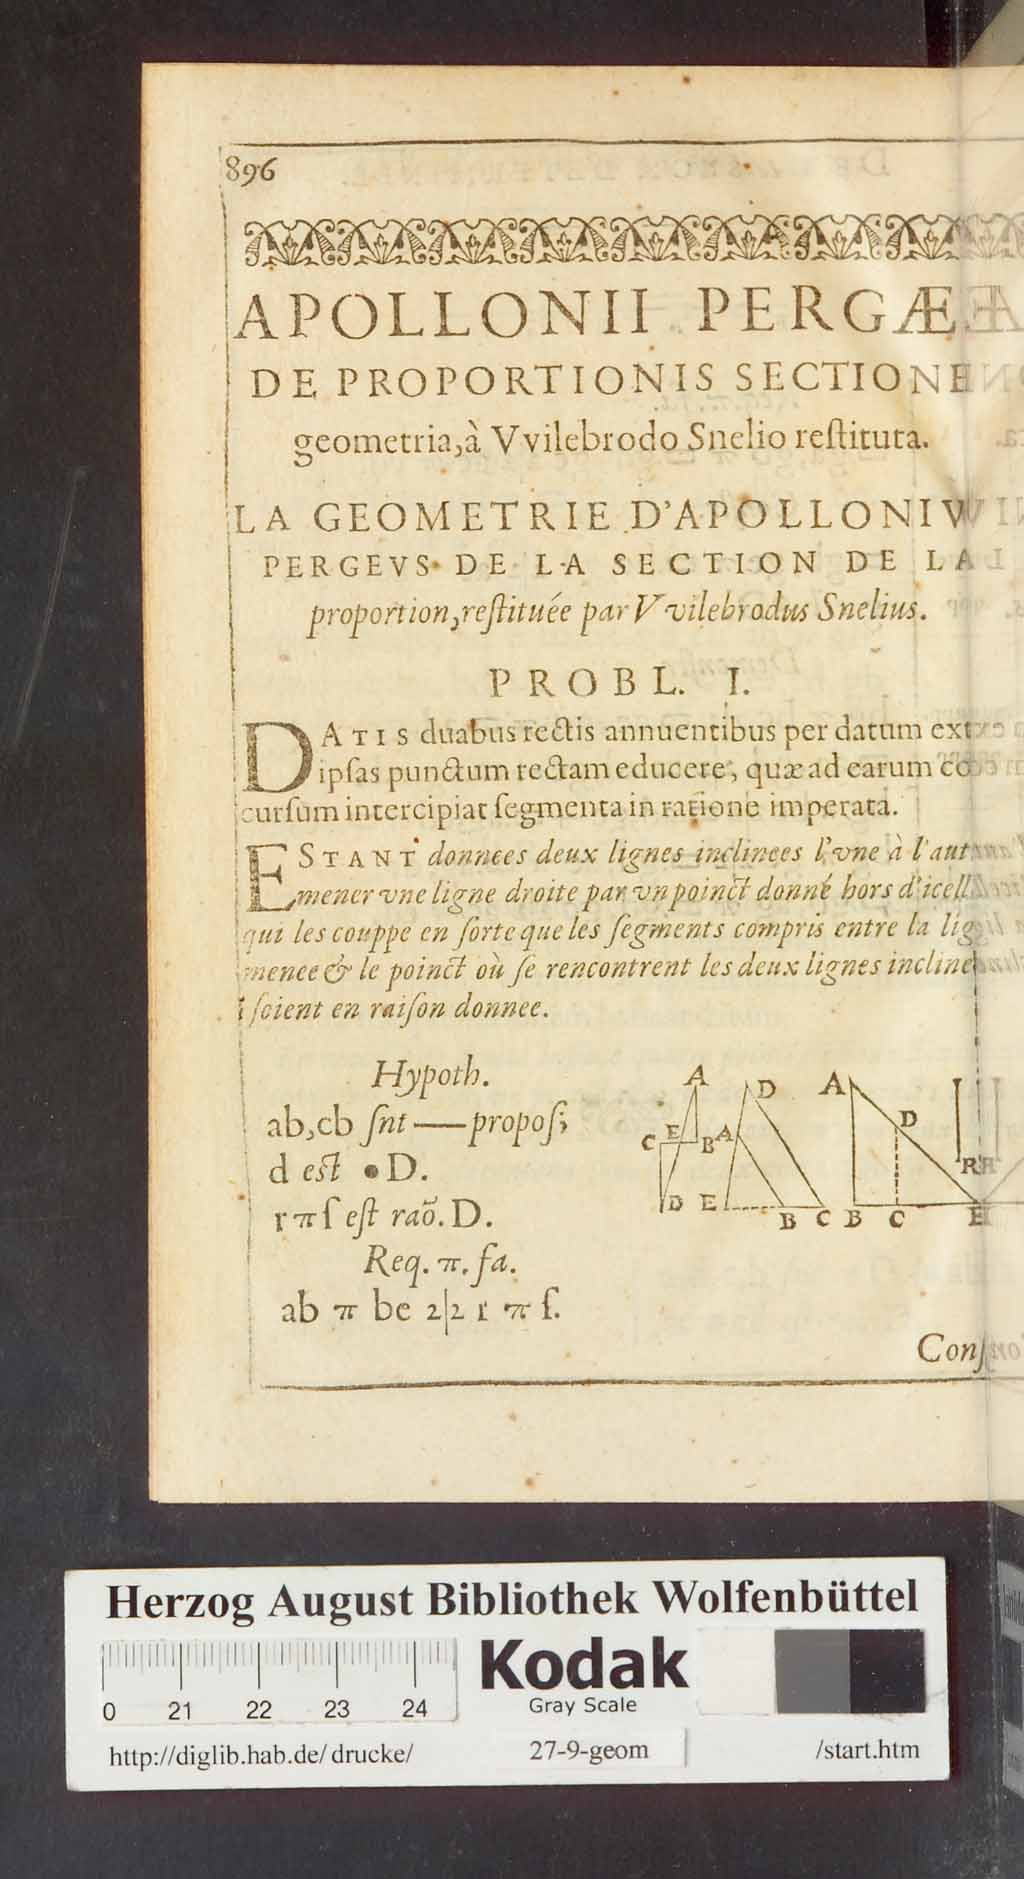 896
APOLLONII PERGÆ
DE PROPORTIONIS SECTIONE
geometria, à VVilebrodo Snelio reſtituta.
LA GEOMETRIE D'APOLLONIV
PERGEVS DE LA SECTION DE LA
proportion, reſtituée par VVilebrodus Snelius.
PROBL. I.
DATIS duabus rectis annuentibus per datum ext
ipſas punctum rectam educere, quæ ad earum co
curſum intercipiat ſegmenta in ratione imperata.
ESTANT donnees deux lignes inclinees l'vne à l'aut
mener vne ligne droite par vn poinct donné hors d'icell
qui les couppe en ſorte que les ſegments compris entre la lig
menee & le poinct où ſe rencontrent les deux lignes incline
ſoient en raiſon donnee.
Hypoth.
ab, cb ſnt — propoſ;
d eſt • D.
r π ſ eſt raõ. D.
Req. π. fa.
ab π be 2|2 r π ſ.
A D A
D
C E B A
R
D E B C B C E
Conſ
Herzog August Bibliothek Wolfenbüttel
Kodak
Gray Scale
0 21 22 23 24
http://diglib.hab.de/drucke/ 27-9-geom /start.htm